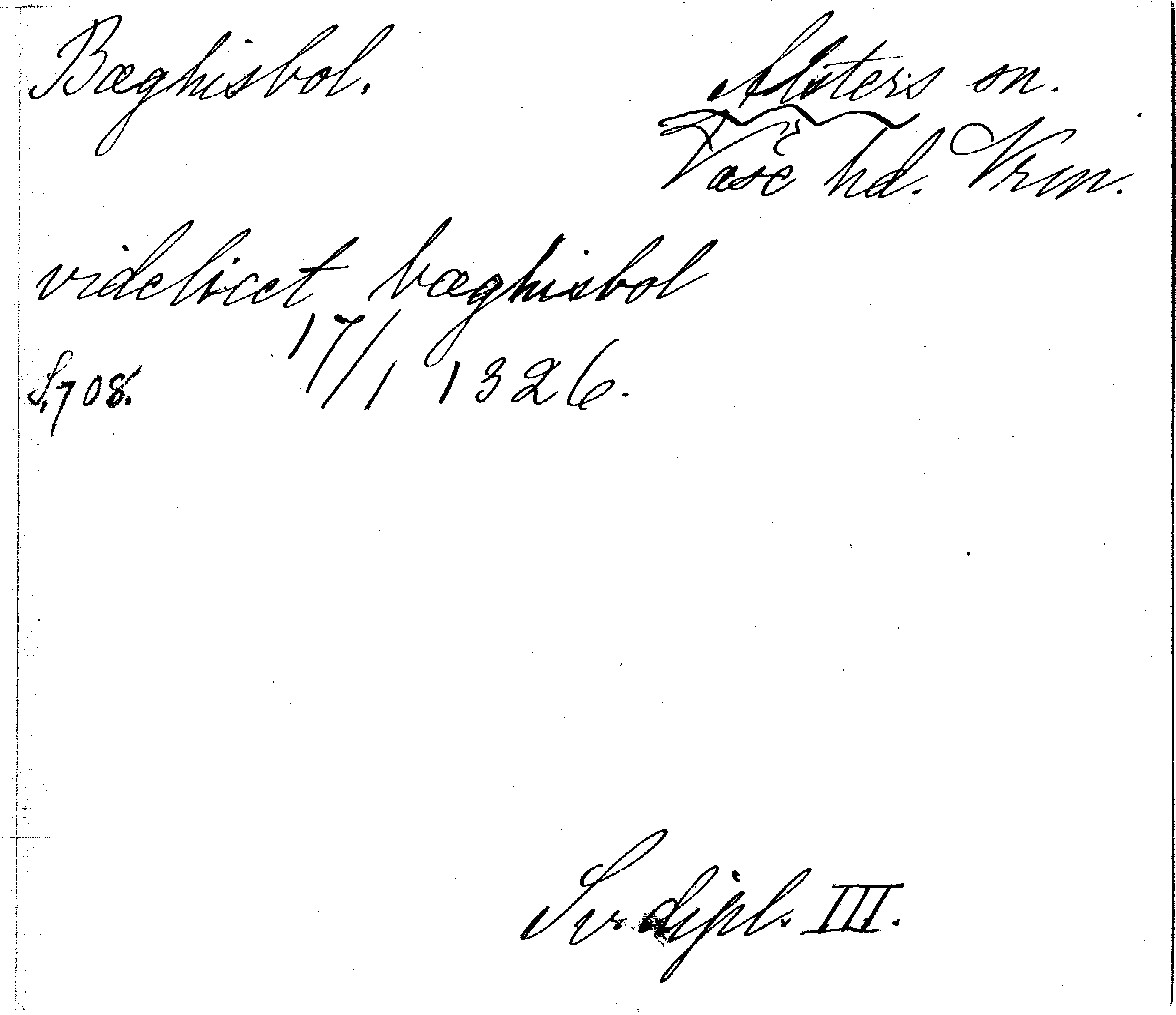 Bæghisbol.
Alsters sn.
Väse hd. Vrm.
videlicet bæghisbol
S. 708. 17/1 1326.
Sv. dipl. III.